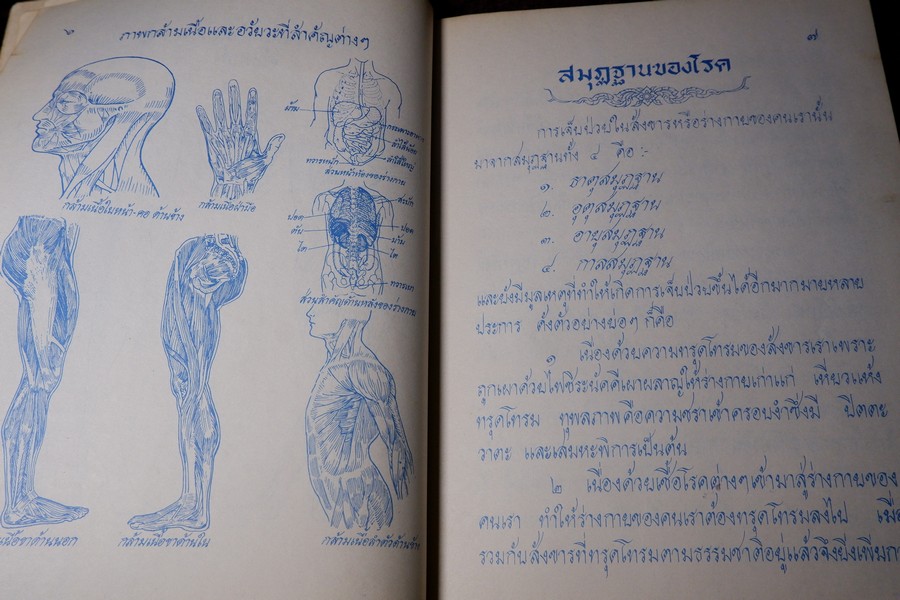 ๖
ภาพกล้ามเนื้อและอวัยวะที่สำคัญต่างๆ
ม้าม
กระเพาะอาหาร
ลำไส้น้อย
ลำไส้ใหญ่
ทวารหนัก
ส่วนหน้าท้องของร่างกาย
กล้ามเนื้อใบหน้า-คอ ด้านข้าง
กล้ามเนื้อฝ่ามือ
สะบัก
ปอด
ปอด
ตับ
ม้าม
ไต
ไต
ทวารเบา
ส่วนสำคัญด้านหลังของร่างกาย
เนื้อขาด้านนอก
กล้ามเนื้อขาด้านใน
กล้ามเนื้อลำตัวด้านข้าง
๗
สมุฏฐานของโรค
การเจ็บป่วยในสังขารหรือร่างกายของคนเรานั้น
มาจากสมุฏฐานทั้ง ๔ คือ :-
๑. ธาตุสมุฏฐาน
๒. อุตุสมุฏฐาน
๓. อายุสมุฏฐาน
๔. กาลสมุฏฐาน
และยังมีมูลเหตุที่ทำให้เกิดการเจ็บป่วยขึ้นได้อีกมากมายหลาย
ประการ ดังตัวอย่างย่อๆ ก็คือ
๑ เนื่องด้วยความทรุดโทรมของสังขารเราเพราะ
ถูกเผาด้วยไฟชิระนัคคีเผาผลาญให้ร่างกายเก่าแก่ เหี่ยวแห้ง
ทรุดโทรม ทุพลภาพคือความชราเข้าครอบงำซึ่งมี ปิตตะ
วาตะ และเสมหะพิการเป็นต้น
๒ เนื่องด้วยเชื้อโรคต่างๆเข้ามาสู่ร่างกายของ
คนเรา ทำให้ร่างกายของคนเราต้องทรุดโทรมลงไป เมื่อ
รวมกับสังขารที่ทรุดโทรมตามธรรมชาติอยู่แล้วจึงยิ่งเพิ่มก